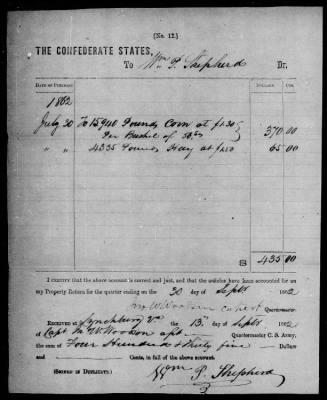 [No. 12.]
THE CONFEDERATE STATES,
To Wm P. Shepherd Dr.
DATE OF PURCHASE DOLLARS CTS.
1862
July 30 To 15940 Pounds Corn at $1.30
Per Bushel of 56 lbs 370 00
" " 4335 Pounds Hay at $1.50 65 00
$ 435 00
I CERTIFY that the above account is correct and just, and that the articles have been accounted for on
my Property Return for the quarter ending on the 30 day of Septr 1862
Quartermaster.
RECEIVED at Lynchburg Va the 13th of Septr 1862 of
Capt M. W. Wootson Quartermaster C. S. Army,
the sum of Four Hundred & thirty five Dollars
and Cents, in full of the above account.
[SIGNED IN DUPLICATE.] Wm P. Shepherd